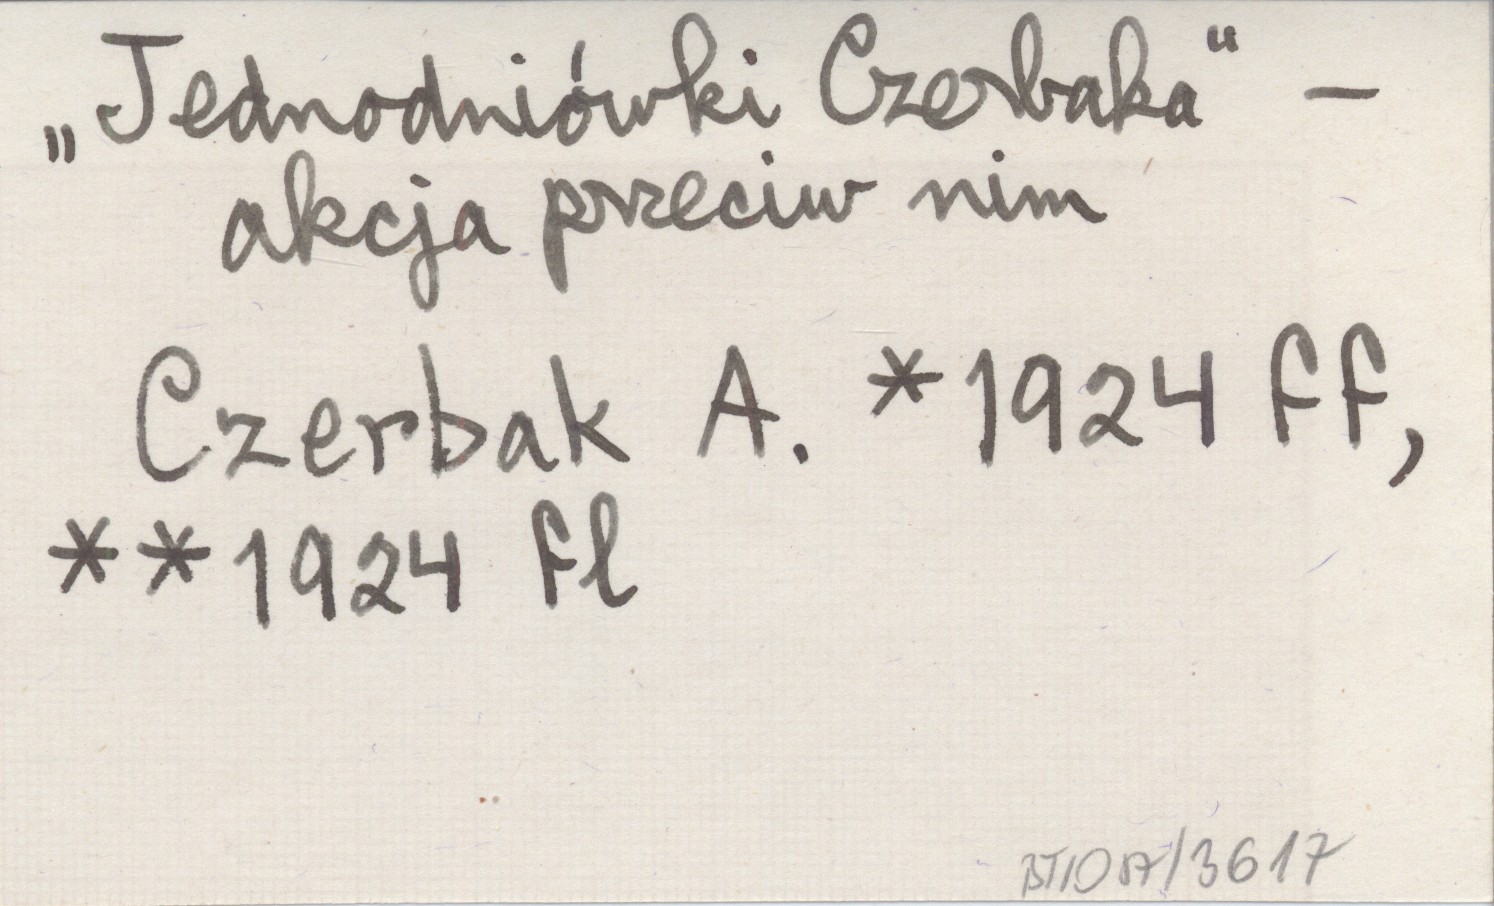 „Jednodniówki Czerbaka" –
akcja przeciw nim
Czerbak A. *1924 ff,
**1924 fl
/3617